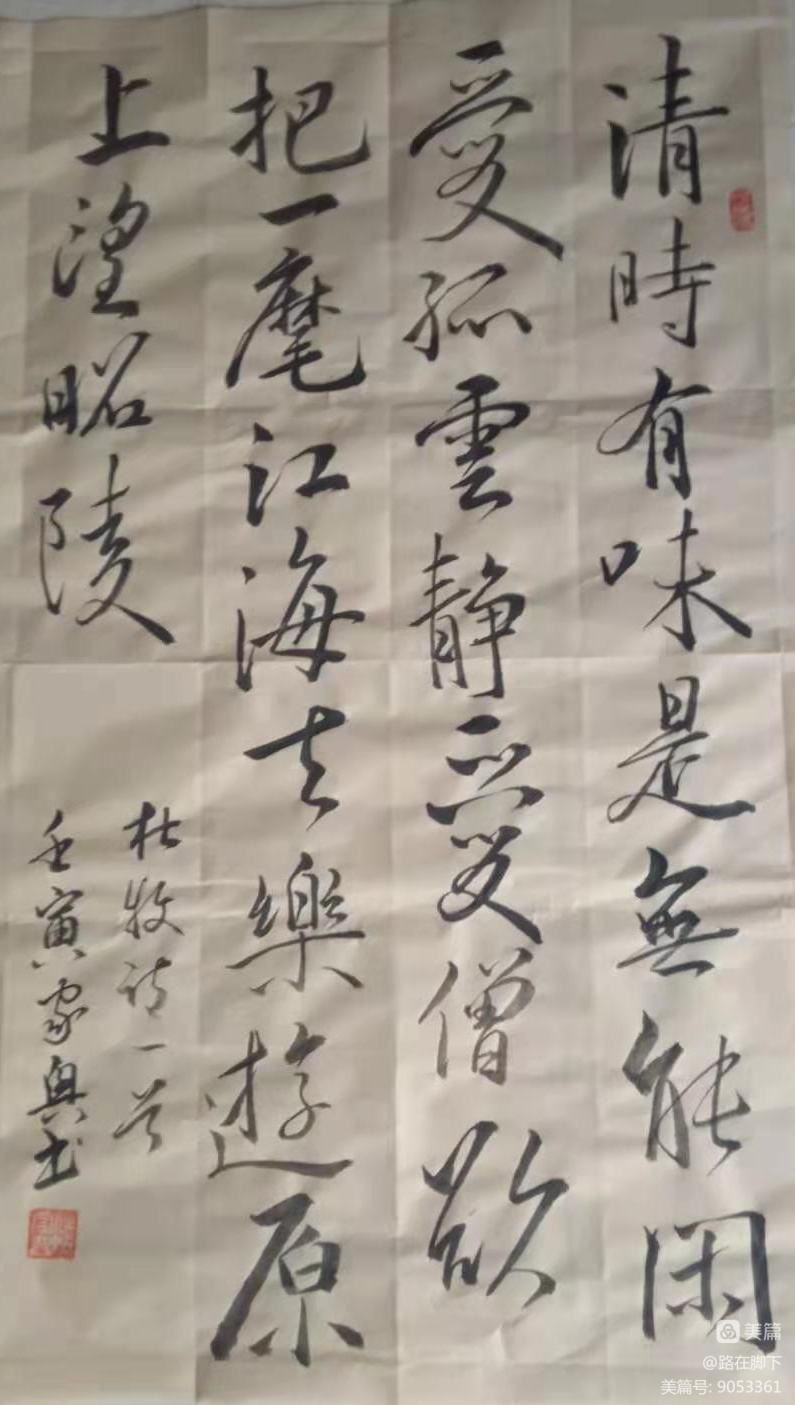 清時有味是無能閑
愛孤雲靜愛僧欲
把一麾江海去樂遊原
上望昭陵
杜牧詩一首
壬寅家興书
美篇
@路在脚下
美篇号: 9053361